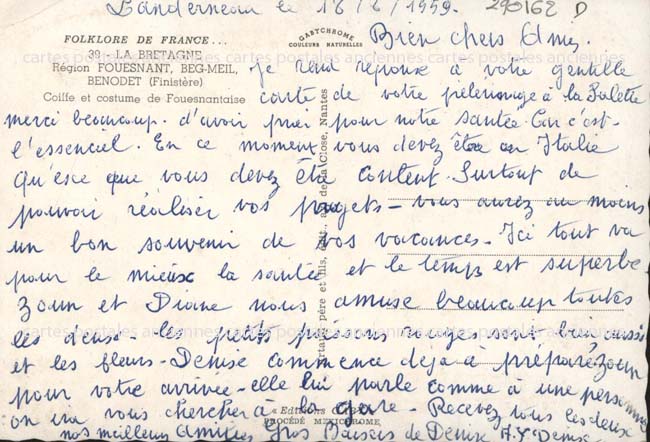 Landerneau le 18/8/1959. 290162 D
FOLKLORE DE FRANCE...
39 - LA BRETAGNE
Région FOUESNANT, BEG-MEIL,
BENODET (Finistère)
Coiffe et costume de Fouesnantaise
GABYCHROME
COULEURS NATURELLES
Bien chers Amis.
Je rend reponse à votre gentille
carte de votre pelerinage à la Salette
merci beaucoup. d'avoir prier pour notre santée. Car c'est
l'essenciel. En ce moment vous devez être en Italie
Qu'esce que vous devez être content. Surtout de
pouvoir réaliser vos projets - vous aurez au moins
un bon souvenir de vos vacances - Ici tout va
pour le mieux la santée et le temps est superbe
Zoun et Diane nous amuse beaucoup toutes
les deux - les petits poissons rouges sont bien aussi
et les fleurs - Denise commence deja à preparé Zoun
pour votre arrivee - elle lui parle comme à une personne
on ira vous chercher à la gare - Recevez tous les deux
nos meilleurs Amities Gros Baisers de Denise A.Y. Denise
père et fils, édit., Close, Nantes
« Editions
PROCÉDÉ MEXICHROME
cartes postales anciennes cartes postales anciennes cartes postales anciennes
cartes postales anciennes cartes postales anciennes cartes postales anciennes